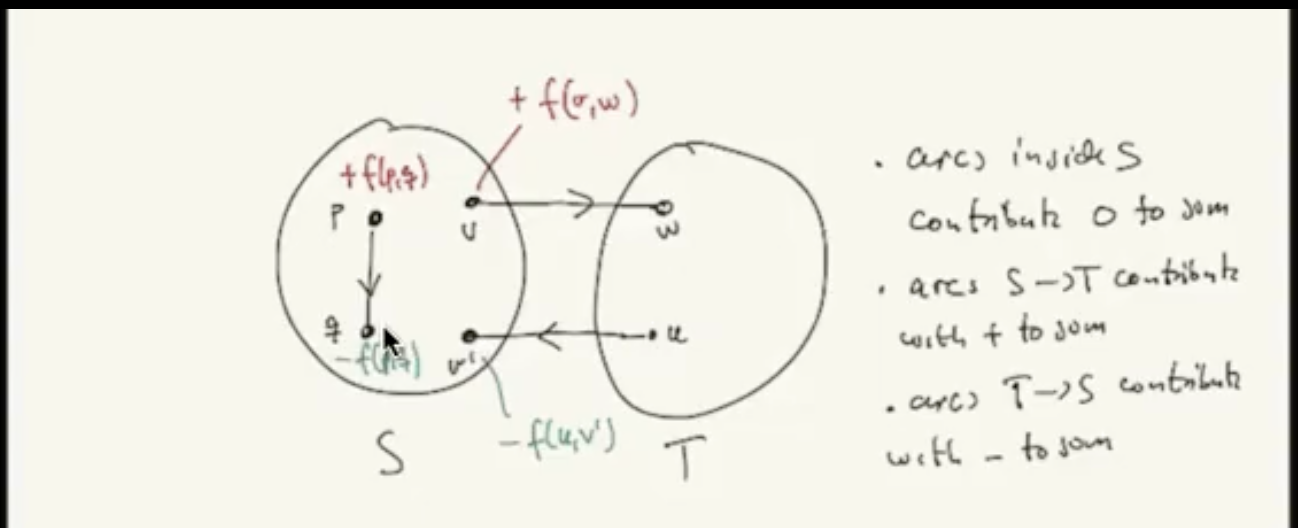 + f(v,w)
+f(p,q)
p
v
w
q
-f(p,q)
v'
u
-f(u,v')
S
T
. arcs inside S
contribute 0 to sum
. arcs S->T contribute
with + to sum
. arcs T->S contribute
with - to sum